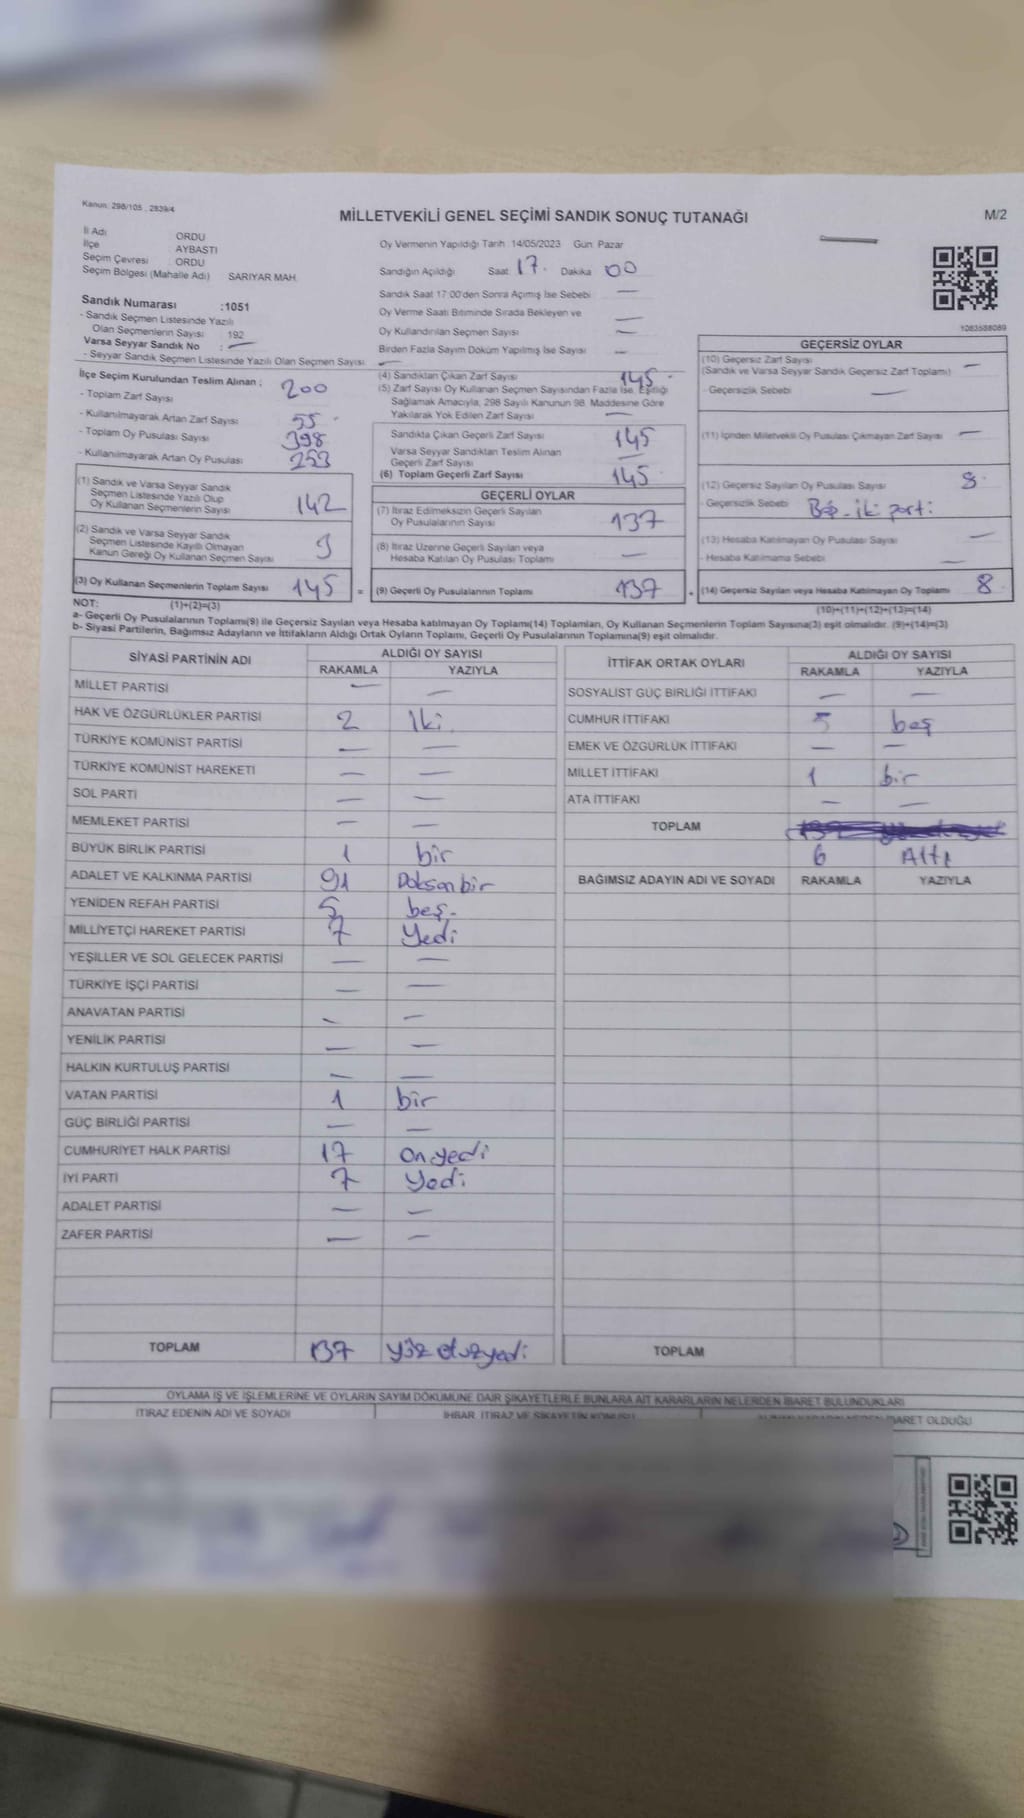 Kanun: 298/105 , 2839/4
MİLLETVEKİLİ GENEL SEÇİMİ SANDIK SONUÇ TUTANAĞI
M/2
İl Adı ORDU
İlçe AYBASTI
Seçim Çevresi : ORDU
Seçim Bölgesi (Mahalle Adı) SARIYAR MAH.
Sandık Numarası :1051
- Sandık Seçmen Listesinde Yazılı
Olan Seçmenlerin Sayısı 192
Varsa Seyyar Sandık No : —
- Seyyar Sandık Seçmen Listesinde Yazılı Olan Seçmen Sayısı —
Oy Vermenin Yapıldığı Tarih 14/05/2023 Gün: Pazar
Sandığın Açıldığı Saat 17. Dakika 00
Sandık Saat 17:00'den Sonra Açılmış İse Sebebi —
Oy Verme Saati Bitiminde Sırada Bekleyen ve —
Oy Kullandırılan Seçmen Sayısı —
Birden Fazla Sayım Döküm Yapılmış İse Sayısı —
1083588089
İlçe Seçim Kurulundan Teslim Alınan ;
- Toplam Zarf Sayısı 200
- Kullanılmayarak Artan Zarf Sayısı 55
- Toplam Oy Pusulası Sayısı 398
- Kullanılmayarak Artan Oy Pusulası 253
(1) Sandık ve Varsa Seyyar Sandık
Seçmen Listesinde Yazılı Olup
Oy Kullanan Seçmenlerin Sayısı 142
(2) Sandık ve Varsa Seyyar Sandık
Seçmen Listesinde Kayıtlı Olmayan
Kanun Gereği Oy Kullanan Seçmen Sayısı 3
(3) Oy Kullanan Seçmenlerin Toplam Sayısı 145 =
(4) Sandıktan Çıkan Zarf Sayısı 145
(5) Zarf Sayısı Oy Kullanan Seçmen Sayısından Fazla İse, Eşitliği
Sağlamak Amacıyla, 298 Sayılı Kanunun 98. Maddesine Göre
Yakılarak Yok Edilen Zarf Sayısı —
Sandıkta Çıkan Geçerli Zarf Sayısı 145
Varsa Seyyar Sandıktan Teslim Alınan
Geçerli Zarf Sayısı —
(6) Toplam Geçerli Zarf Sayısı 145
GEÇERLİ OYLAR
(7) İtiraz Edilmeksizin Geçerli Sayılan
Oy Pusulalarının Sayısı 137
(8) İtiraz Üzerine Geçerli Sayılan veya
Hesaba Katılan Oy Pusulası Toplamı —
(9) Geçerli Oy Pusulalarının Toplamı 137 +
GEÇERSİZ OYLAR
(10) Geçersiz Zarf Sayısı
(Sandık ve Varsa Seyyar Sandık Geçersiz Zarf Toplamı) —
- Geçersizlik Sebebi —
(11) İçinden Milletvekili Oy Pusulası Çıkmayan Zarf Sayısı —
(12) Geçersiz Sayılan Oy Pusulası Sayısı 8
- Geçersizlik Sebebi iki parti
(13) Hesaba Katılmayan Oy Pusulası Sayısı —
- Hesaba Katılmama Sebebi —
(14) Geçersiz Sayılan veya Hesaba Katılmayan Oy Toplamı 8
NOT: (1)+(2)=(3) (10)+(11)+(12)+(13)=(14)
a- Geçerli Oy Pusulalarının Toplamı(9) ile Geçersiz Sayılan veya Hesaba katılmayan Oy Toplamı(14) Toplamları, Oy Kullanan Seçmenlerin Toplam Sayısına(3) eşit olmalıdır. (9)+(14)=(3)
b- Siyasi Partilerin, Bağımsız Adayların ve İttifakların Aldığı Ortak Oyların Toplamı, Geçerli Oy Pusulalarının Toplamına(9) eşit olmalıdır.
SİYASİ PARTİNİN ADI ALDIĞI OY SAYISI
RAKAMLA YAZIYLA
MİLLET PARTİSİ — —
HAK VE ÖZGÜRLÜKLER PARTİSİ 2 İki
TÜRKİYE KOMÜNİST PARTİSİ — —
TÜRKİYE KOMÜNİST HAREKETİ — —
SOL PARTİ — —
MEMLEKET PARTİSİ — —
BÜYÜK BİRLİK PARTİSİ 1 bir
ADALET VE KALKINMA PARTİSİ 91 Doksan bir
YENİDEN REFAH PARTİSİ 5 beş
MİLLİYETÇİ HAREKET PARTİSİ 7 Yedi
YEŞİLLER VE SOL GELECEK PARTİSİ — —
TÜRKİYE İŞÇİ PARTİSİ — —
ANAVATAN PARTİSİ — —
YENİLİK PARTİSİ — —
HALKIN KURTULUŞ PARTİSİ — —
VATAN PARTİSİ 1 bir
GÜÇ BİRLİĞİ PARTİSİ — —
CUMHURİYET HALK PARTİSİ 17 On yedi
İYİ PARTİ 7 Yedi
ADALET PARTİSİ — —
ZAFER PARTİSİ — —
TOPLAM 137 yüz otuzyedi
İTTİFAK ORTAK OYLARI ALDIĞI OY SAYISI
RAKAMLA YAZIYLA
SOSYALİST GÜÇ BİRLİĞİ İTTİFAKI — —
CUMHUR İTTİFAKI 5 beş
EMEK VE ÖZGÜRLÜK İTTİFAKI — —
MİLLET İTTİFAKI 1 bir
ATA İTTİFAKI — —
TOPLAM
6 Altı
BAĞIMSIZ ADAYIN ADI VE SOYADI RAKAMLA YAZIYLA
TOPLAM
OYLAMA İŞ VE İŞLEMLERİNE VE OYLARIN SAYIM DÖKÜMÜNE DAİR ŞİKAYETLERLE BUNLARA AİT KARARLARIN NELERDEN İBARET BULUNDUKLARI
İTİRAZ EDENİN ADI VE SOYADI İHBAR, İTİRAZ VE ŞİKAYETİN KONUSU İBARET OLDUĞU